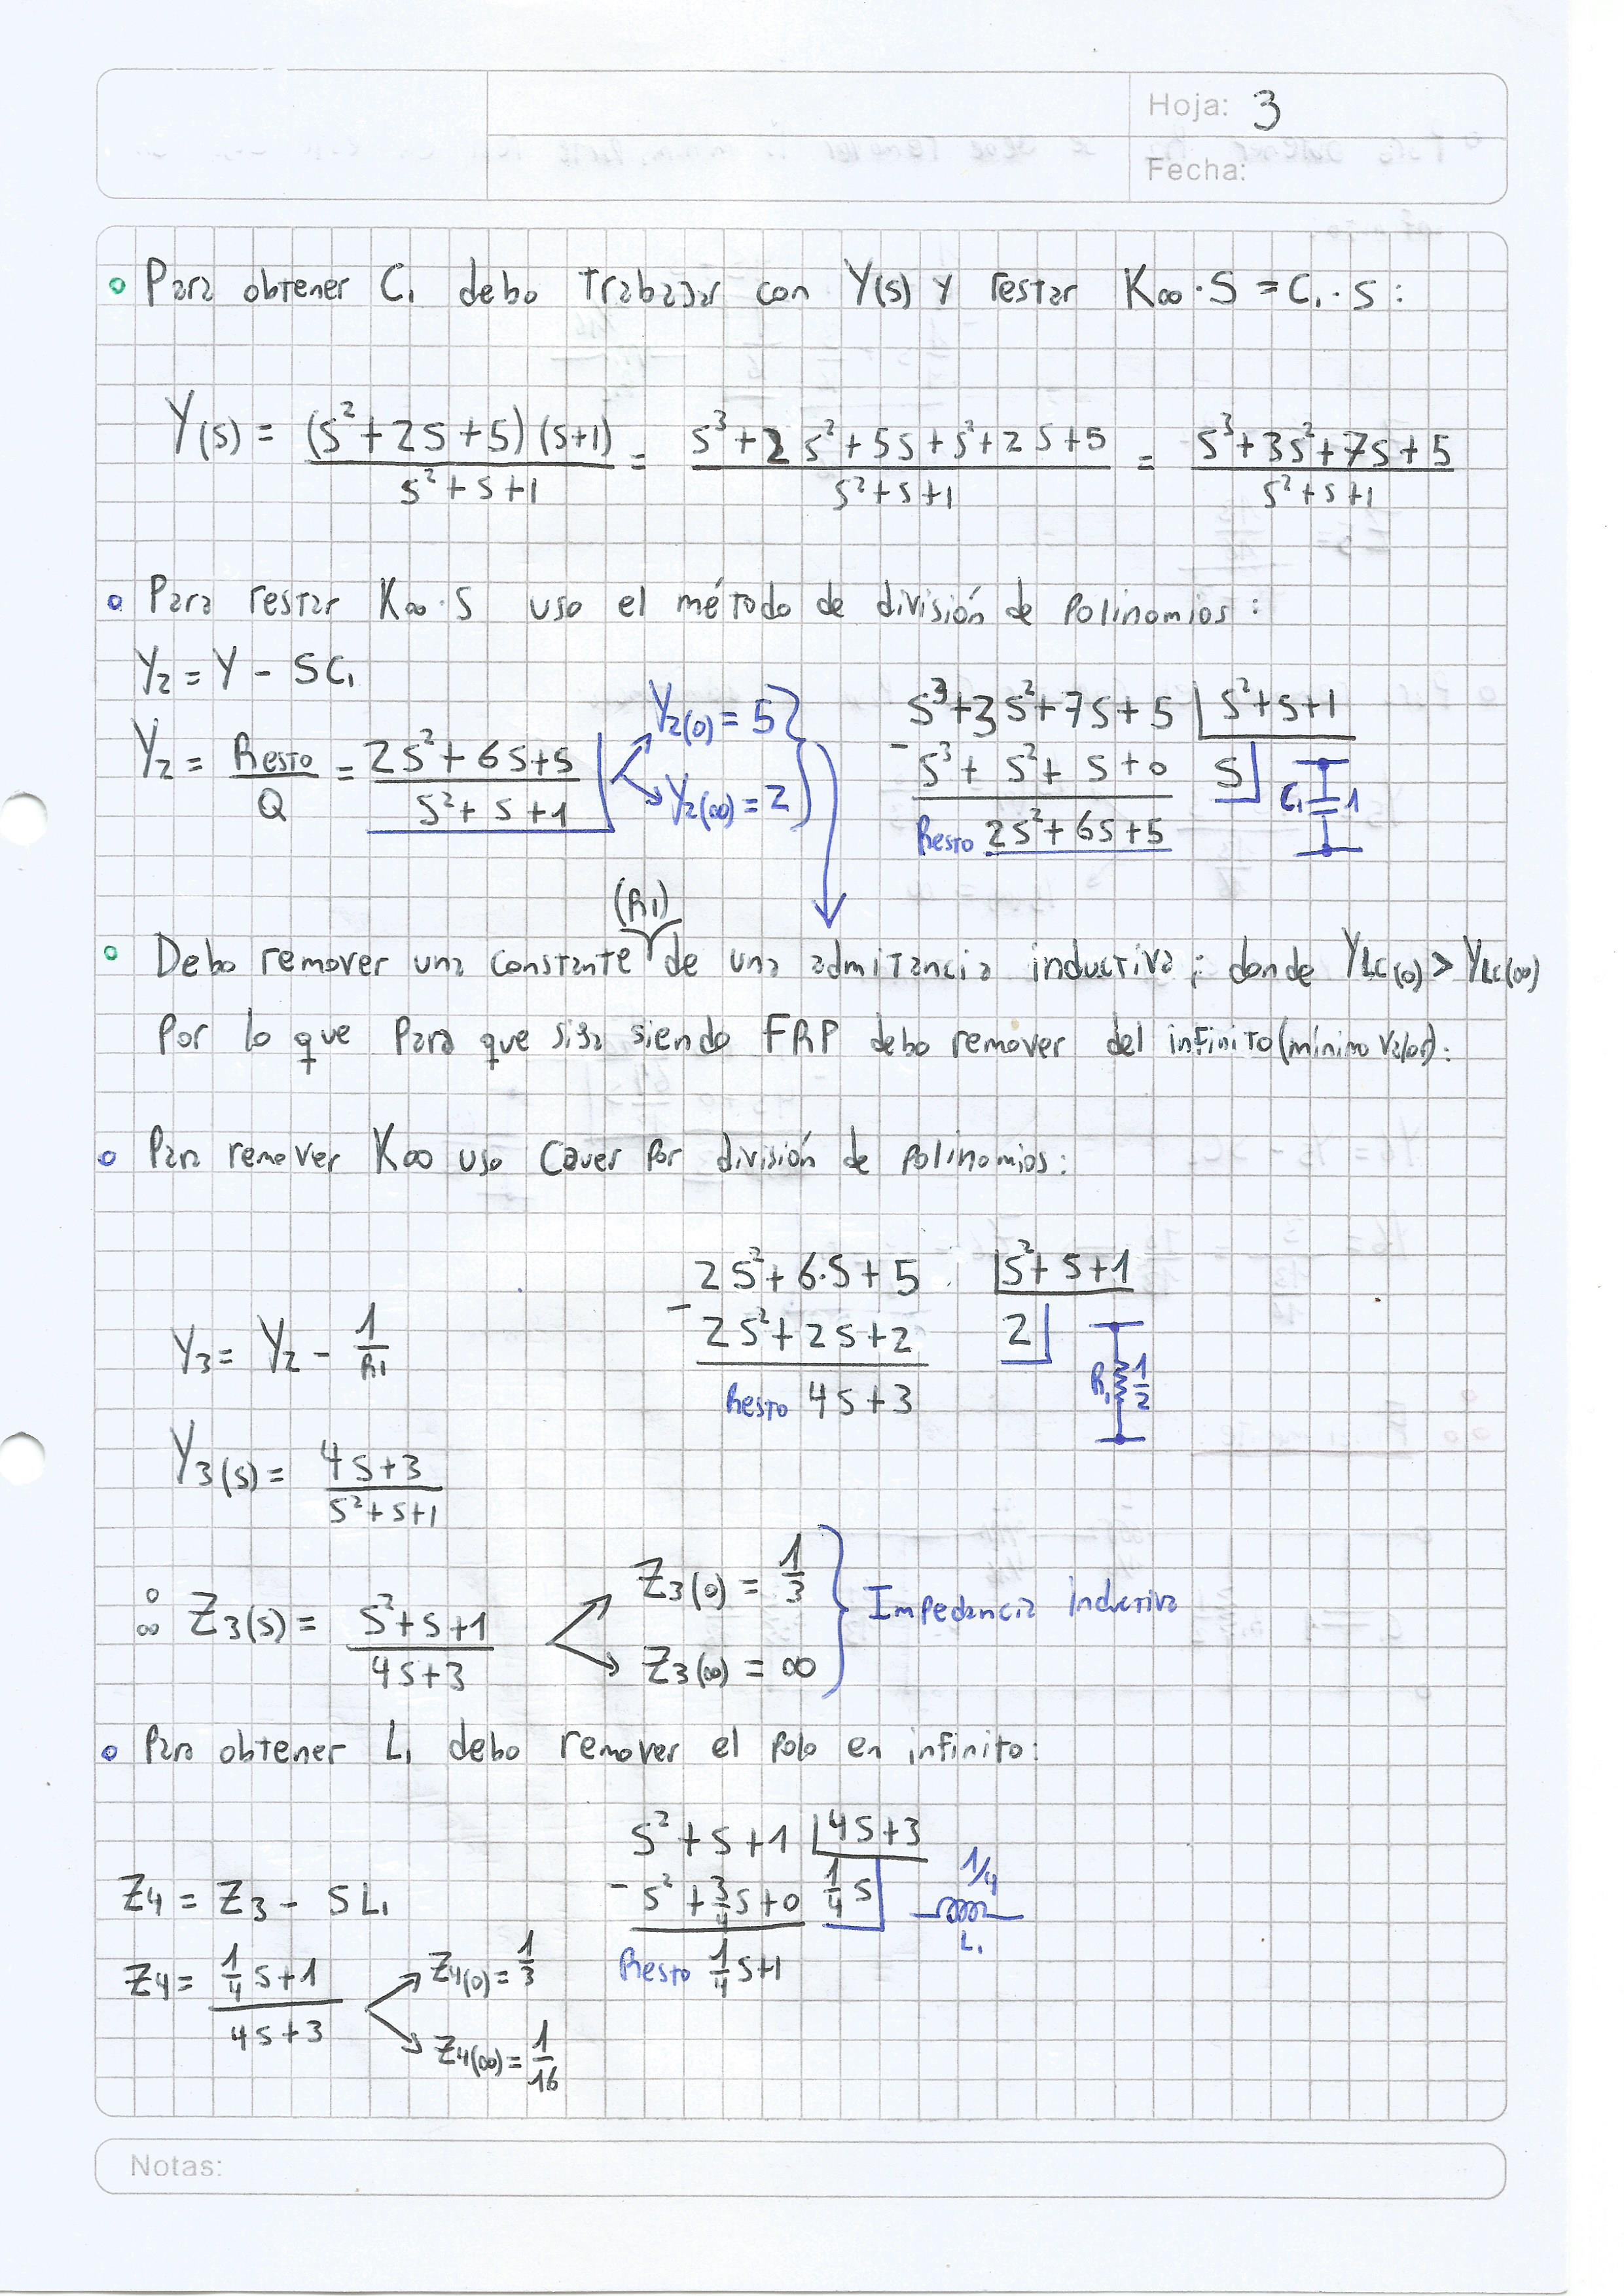 Hoja: 3
Fecha:
Para obtener C₁ debo trabajar con Y(s) y restar K∞·S = C₁·S:
Y(s) = (s²+2s+5)(s+1) / (s²+s+1) = (s³+2s²+5s+s²+2s+5) / (s²+s+1) = (s³+3s²+7s+5) / (s²+s+1)
Para restar K∞·S uso el método de división de Polinomios:
Y₂ = Y - SC₁
Y₂ = Resto / Q = (2s²+6s+5) / (s²+s+1)
Y₂(0) = 5
Y₂(∞) = 2
s³+3s²+7s+5 | s²+s+1
- s³+s²+s+0 s C₁ 1
Resto 2s²+6s+5
(R1)
Debo remover una constante de una admitancia inductiva; donde YLC(0) > YLC(∞)
Por lo que Para que siga siendo FRP debo remover del infinito (mínimo valor):
Para remover K∞ uso Cauer Por división de Polinomios:
2s²+6·s+5 | s²+s+1
- 2s²+2s+2 2 R₁ 1/2
Resto 4s+3
Y₃ = Y₂ - 1/R1
Y₃(s) = (4s+3) / (s²+s+1)
∴ Z₃(s) = (s²+s+1) / (4s+3)
Z₃(0) = 1/3
Z₃(∞) = ∞
Impedancia Inductiva
Para obtener L₁ debo remover el Polo en infinito:
s²+s+1 | 4s+3
- s²+3/4s+0 1/4 s 1/4 L₁
Resto 1/4 s+1
Z₄ = Z₃ - SL₁
Z₄ = (1/4 s+1) / (4s+3)
Z₄(0) = 1/3
Z₄(∞) = 1/16
Notas: